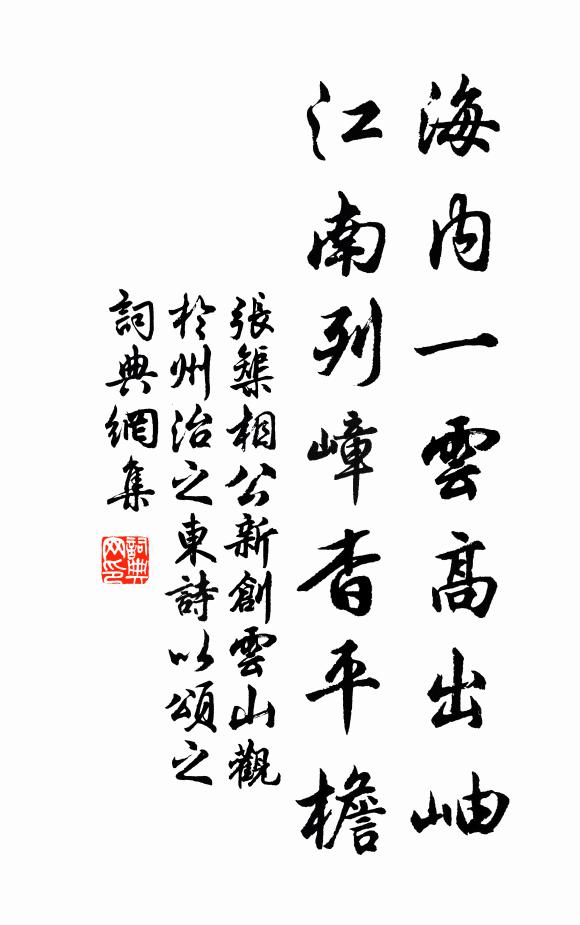 海内一雲高出岫
江南列嶂杳平檐
張榘相公新創雲山觀
於州治之東詩以頌之
詞典網集
詞典
网印